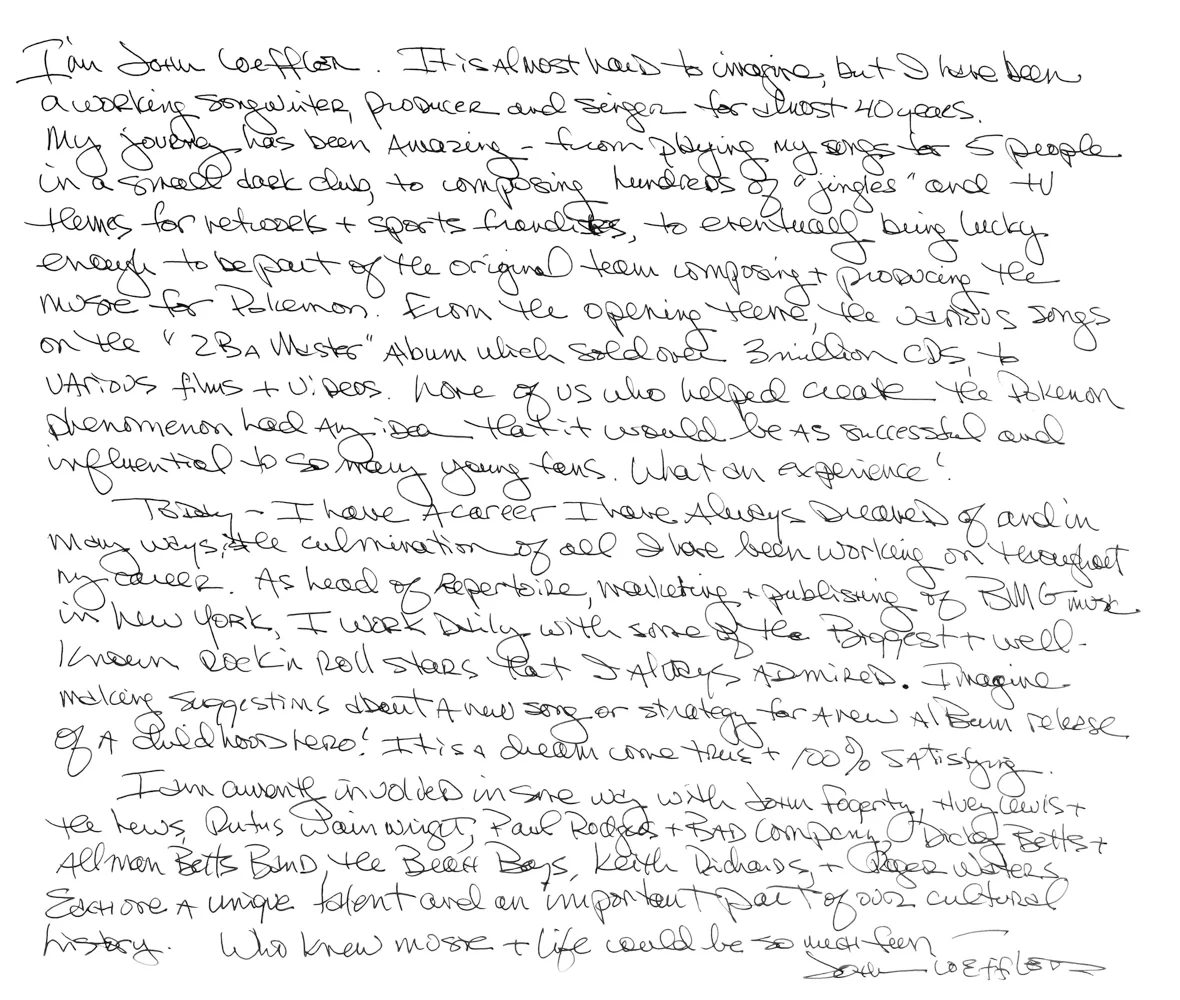 I'm John Loeffler. It is Almost hard to imagine, but I have been
a working songwriter, producer and singer for almost 40 years.
My journey has been Amazing - from playing my songs to 5 people
in a small dark club, to composing hundreds of "jingles" and TV
themes for networks + sports franchises, to eventually being lucky
enough to be part of the original team composing + producing the
music for Pokemon. From the opening theme, the various songs
on the "2 B A Master" Album which sold over 3 million CDs, to
various films + videos. None of us who helped create the Pokemon
phenomenon had any idea that it would be as successful and
influential to so many young fans. What an experience!
Today - I have A career I have Always Dreamed of and in
many ways, the culmination of all I have been working on throughout
my career. As head of Repertoire, marketing + publishing of BMG music
in New York, I work Daily with some of the Biggest + well-
known Rock'n Roll stars that I Always ADMIRED. Imagine
making suggestions about A new song or strategy for A new Album release
of A childhood hero! It is a dream come true + 100% satisfying.
I am currently involved in some way with John Fogerty, Huey Lewis +
the News, Rufus Wainwright, Paul Rodgers + BAD Company, Dicky Betts +
Allman Betts Band, the Beach Boys, Keith Richards, + Roger Waters.
Each one A unique talent and an important part of our cultural
history. Who knew music + life could be so much fun
John Loeffler